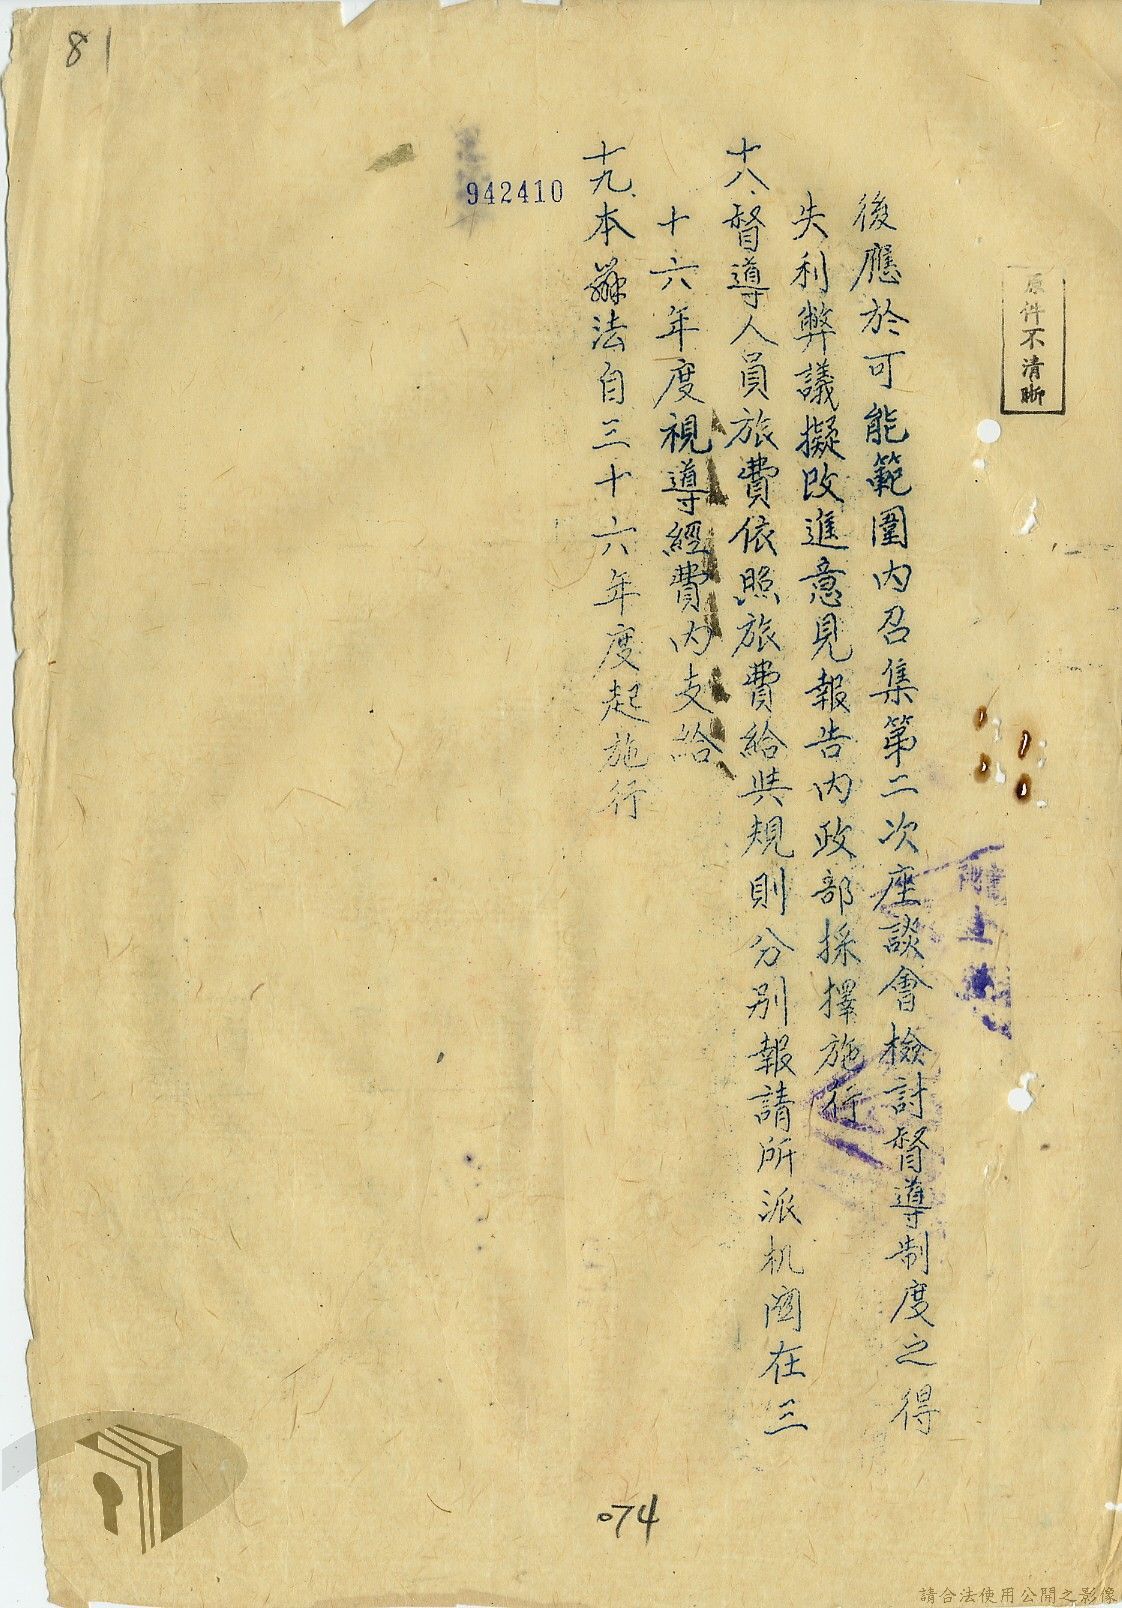 81
原件不清晰
後應於可能範圍內召集第二次座談會檢討督導制度之得
失利弊議擬改進意見報告內政部採擇施行
十八、督導人員旅費依照旅費給與規則分別報請所派机関在三
十六年度視導經費內支給
十九、本辦法自三十六年度起施行
942410
074
請合法使用公開之影像